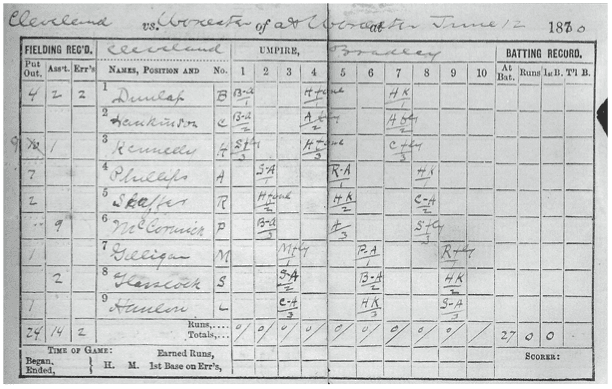 Cleveland vs. Worcester of at Worcester at June 12 1880
FIELDING REC'D. Cleveland UMPIRE, Bradley BATTING RECORD.
Put Out. Ass't. Err's NAMES, POSITION AND No. 1 2 3 4 5 6 7 8 9 10 At Bat. Runs 1st B. T'l B.
4 2 2 1 Dunlap B B-A 1 H+foul 1 HK 1
2 Hankinson C B-A 2 A+fly 2 A fly 2
1 3 Kennedy H S+fly 3 H+foul 3 C+fly 3
7 4 Phillips A S-A 1 R-A 1 HK 1
2 5 Shaffer R H+foul 2 HK 2 C-A 2
9 6 McCormick P B-A 3 A 3 S+fly 3
1 7 Gilligan M M+fly 1 P-A 1 R+fly 1
2 8 Glasscock S S-A 2 B-A 2 HK 2
1 9 Hanlon L C-A 3 HK 3 S-A 3
24 14 2 Runs, Totals, 0 0 0 0 0 0 0 0 0 27 0 0
TIME OF GAME: Earned Runs, SCORER:
Began. H. M. 1st Base on Err's,
Ended,